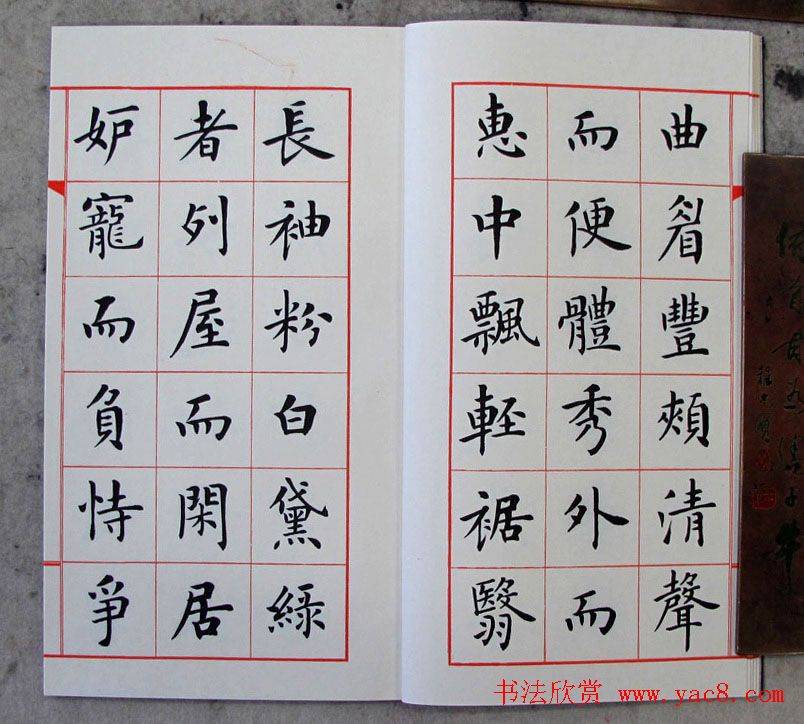 曲眉豐頰清聲
而便體秀外而
惠中飄輕裾翳
長袖粉白黛綠
者列屋而閑居
妒寵而負恃爭
书法欣赏 www.yac8.com